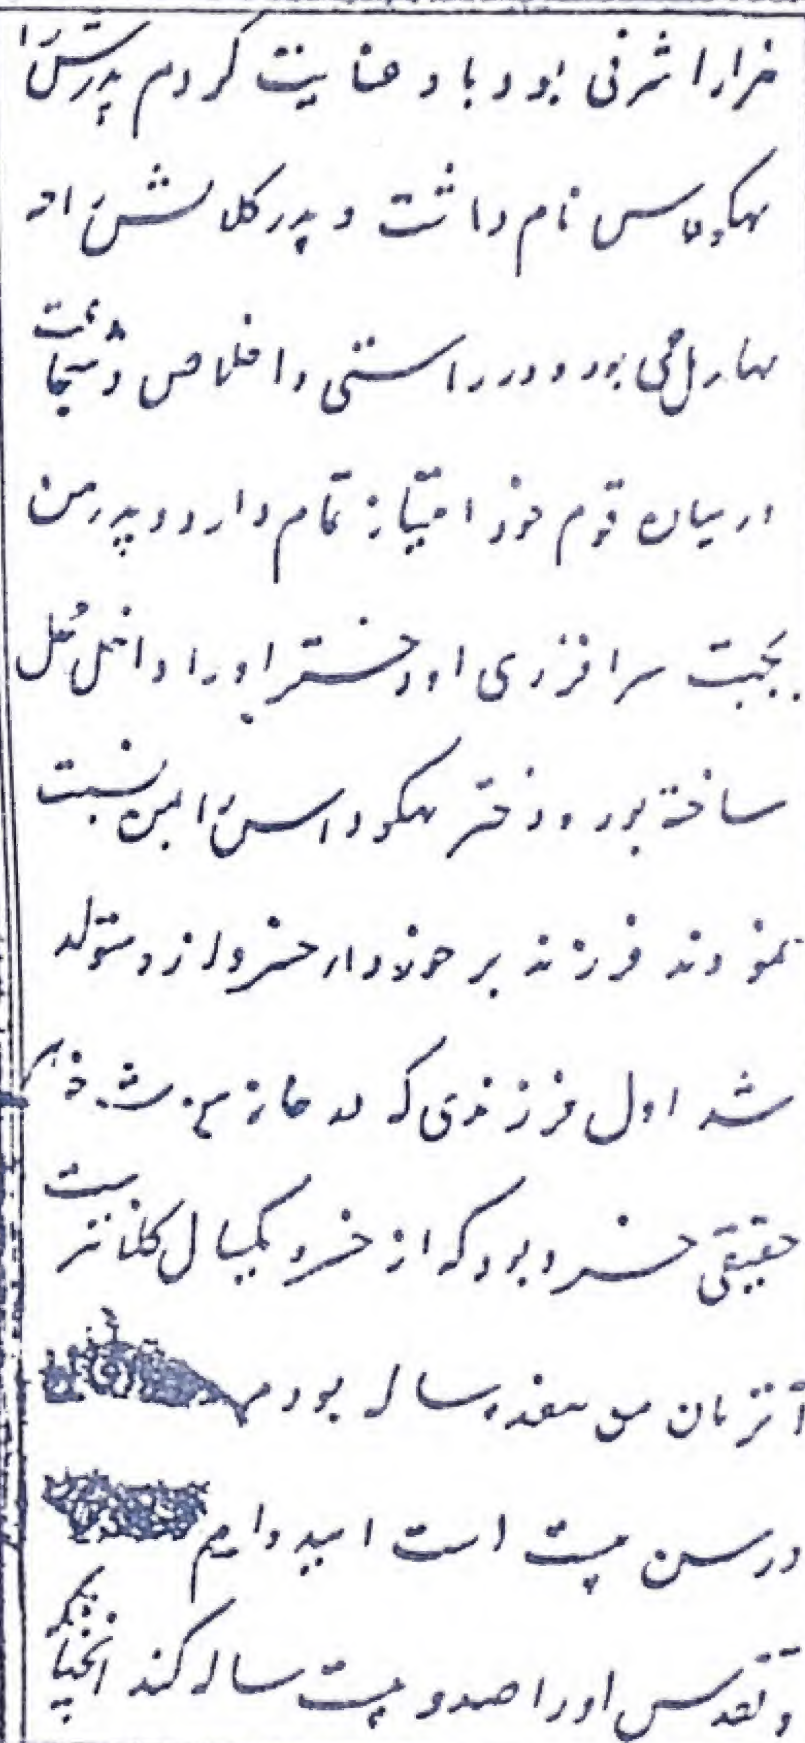 هزار اشرفی بود باو عنایت کردم پدرش را
بهکوداس نام داشت و پدر کلانش راجه
بهارمل می بود و در راستی و اخلاص و شجاعت
در میان قوم خود امتیاز تمام دارد و پدر من
بجهت سرافرازی او دختر او را داخل محل
ساخته بود و دختر بهکوداس را بمن نسبت
نمودند فرزند برخوردار خسرو ازو متولد
شد اول فرزندی که در خانه من شد خواهر
حقیقی خسرو بود که از خسرو یکسال کلانتر است
آنزمان من هفده ساله بودم
در سن بیست است امیدوارم
و تقدس او را صد و بیست ساله کند